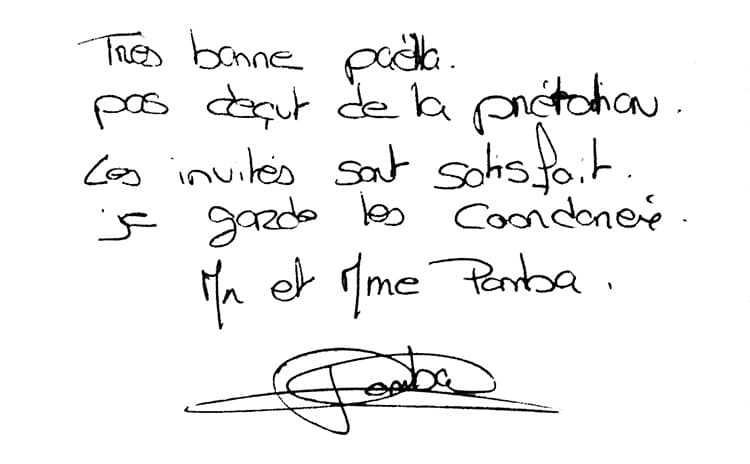 Très bonne paëlla.
pas deçut de la prétation.
Les invités sont satisfait.
je garde les Coordoneié.
Mr et Mme Pamba.
Pamba